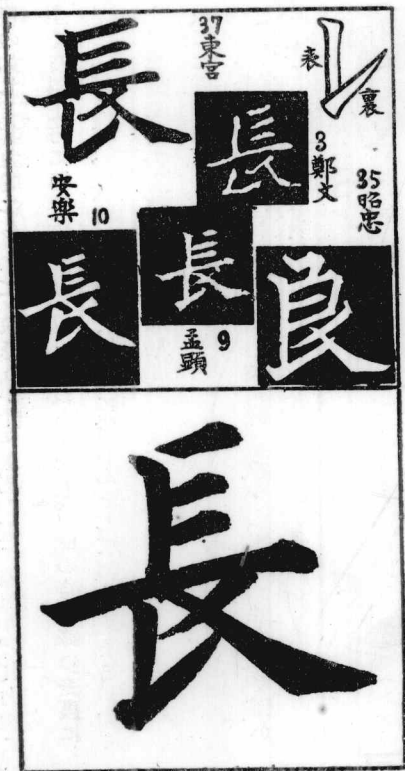 長
37 東宮
表
裏
長
3 鄭文
35 昭忠
安樂 10
長
長
9 孟顕
良
長